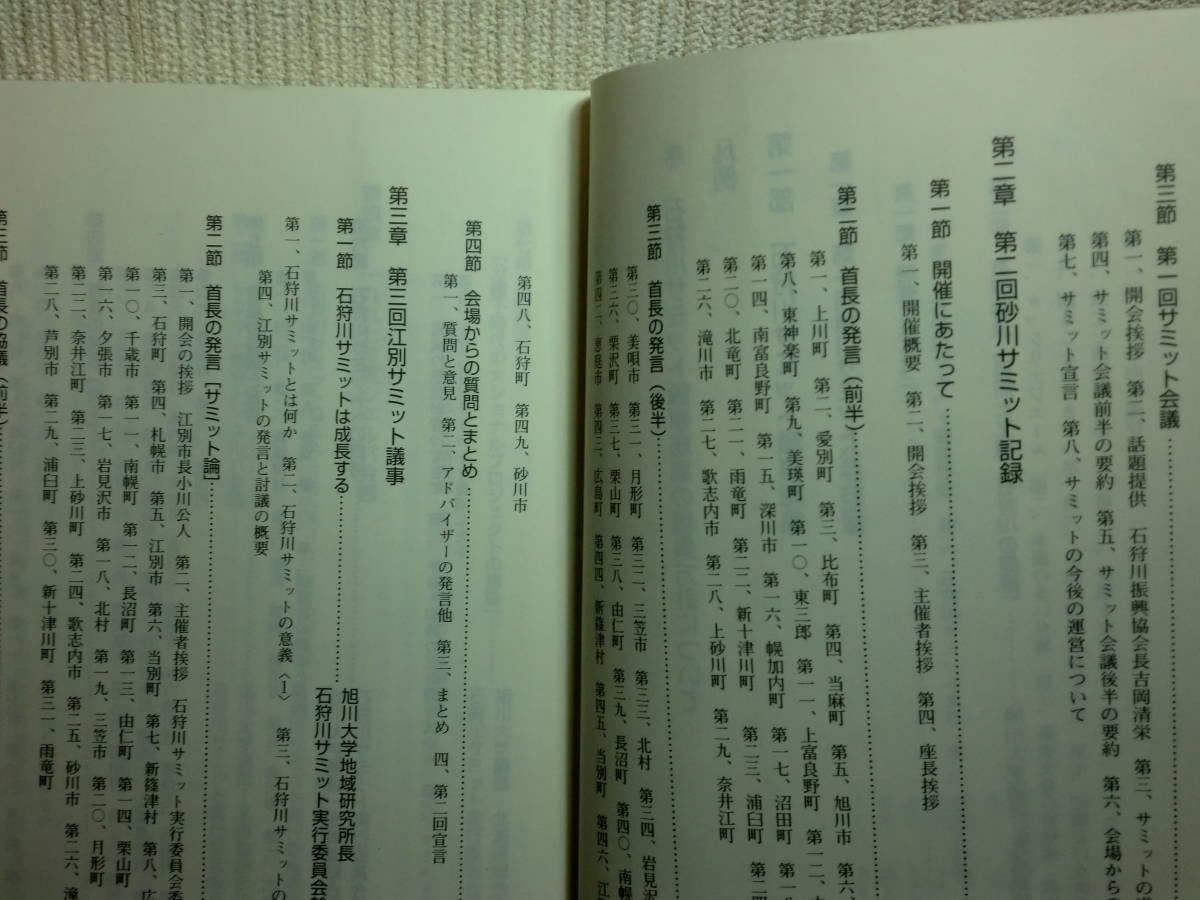 第三節　第一回サミット会議
第一、開会挨拶　第二、話題提供　石狩川振興協会長吉岡清栄　第三、サミットの
第四、サミット会議前半の要約　第五、サミット会議後半の要約　第六、会場から
第七、サミット宣言　第八、サミットの今後の運営について
第二章　第二回砂川サミット記録
第一節　開催にあたって
第一、開催概要　第二、開会挨拶　第三、主催者挨拶　第四、座長挨拶
第二節　首長の発言（前半）
第一、上川町　第二、愛別町　第三、比布町　第四、当麻町　第五、旭川市　第六、
第八、東神楽町　第九、美瑛町　第一〇、東三郎　第一一、上富良野町　第一二、
第一四、南富良野町　第一五、深川市　第一六、幌加内町　第一七、沼田町　第一八
第二〇、北竜町　第二一、雨竜町　第二二、新十津川町　第二三、浦臼町　第二四
第二六、滝川市　第二七、歌志内市　第二八、上砂川町　第二九、奈井江町
第三節　首長の発言（後半）
第三〇、美唄市　第三一、月形町　第三二、三笠市　第三三、北村　第三四、岩見沢
第三六、栗沢町　第三七、栗山町　第三八、由仁町　第三九、長沼町　第四〇、南幌
第四二、恵庭市　第四三、広島町　第四四、新篠津村　第四五、当別町　第四六、江
第四八、石狩町　第四九、砂川市
第四節　会場からの質問とまとめ
第一、質問と意見　第二、アドバイザーの発言他　第三、まとめ　四、第二回宣言
第三章　第三回江別サミット議事
第一節　石狩川サミットは成長する　旭川大学地域研究所長
石狩川サミット実行委員会
第一、石狩川サミットとは何か　第二、石狩川サミットの意義〈1〉　第三、石狩川サミットの
第四、江別サミットの発言と討議の概要
第二節　首長の発言［サミット論］
第一、開会の挨拶　江別市長小川公人　第二、主催者挨拶　石狩川サミット実行委員会委
第三、石狩町　第四、札幌市　第五、江別市　第六、当別町　第七、新篠津村　第八、広
第一〇、千歳市　第一一、南幌町　第一二、長沼町　第一三、由仁町　第一四、栗山町
第一六、夕張市　第一七、岩見沢市　第一八、北村　第一九、三笠市　第二〇、月形町
第二二、奈井江町　第二三、上砂川町　第二四、歌志内市　第二五、砂川市　第二六、滝
第二八、芦別市　第二九、浦臼町　第三〇、新十津川町　第三一、雨竜町
第三節　首長の協議（前半）